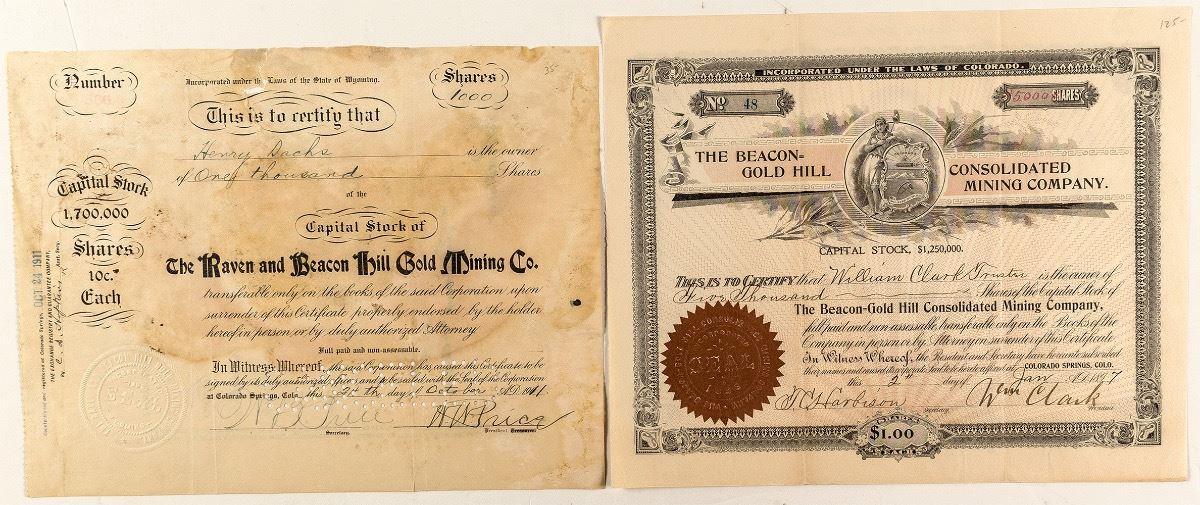 Number
Incorporated under the Laws of the State of Wyoming.
Shares
1000
35
This is to certify that
Henry Dachs
is the owner
of One thousand Shares
of the
Capital Stock
1,700,000
Shares
10c.
Each
Capital Stock of
The Raven and Beacon Hill Gold Mining Co.
transferable only on the books of the said Corporation upon
surrender of this Certificate properly endorsed by the holder
hereof in person or by duly authorized Attorney
Full paid and non-assessable.
In Witness Whereof, the said Corporation has caused this Certificate to be
signed by its duly authorized officers and to be sealed with the Seal of the Corporation
at Colorado Springs, Colo. this day of October A.D. 1911.
Secretary.
President.
OCT 24 1911
THE EXCHANGE REGISTRY AND GUARANTEE COMPANY,
125-
INCORPORATED UNDER THE LAWS OF COLORADO.
No 48
5000 SHARES
THE BEACON-
GOLD HILL
CONSOLIDATED
MINING COMPANY.
CAPITAL STOCK, $1,250,000.
THIS IS TO CERTIFY that William Clark Trustee is the owner of
Five Thousand Shares of the Capital Stock of
The Beacon-Gold Hill Consolidated Mining Company,
full paid and non assessable, transferable only on the Books of the
Company in person or by Attorney on surrender of this Certificate
In Witness Whereof, the President and Secretary have hereunto subscribed
their names and caused its corporate Seal to be hereto affixed at COLORADO SPRINGS, COLO.
this 2nd day of Jan
Wm Clark
Secretary
President
SEAL
SHARES
$1.00
EACH